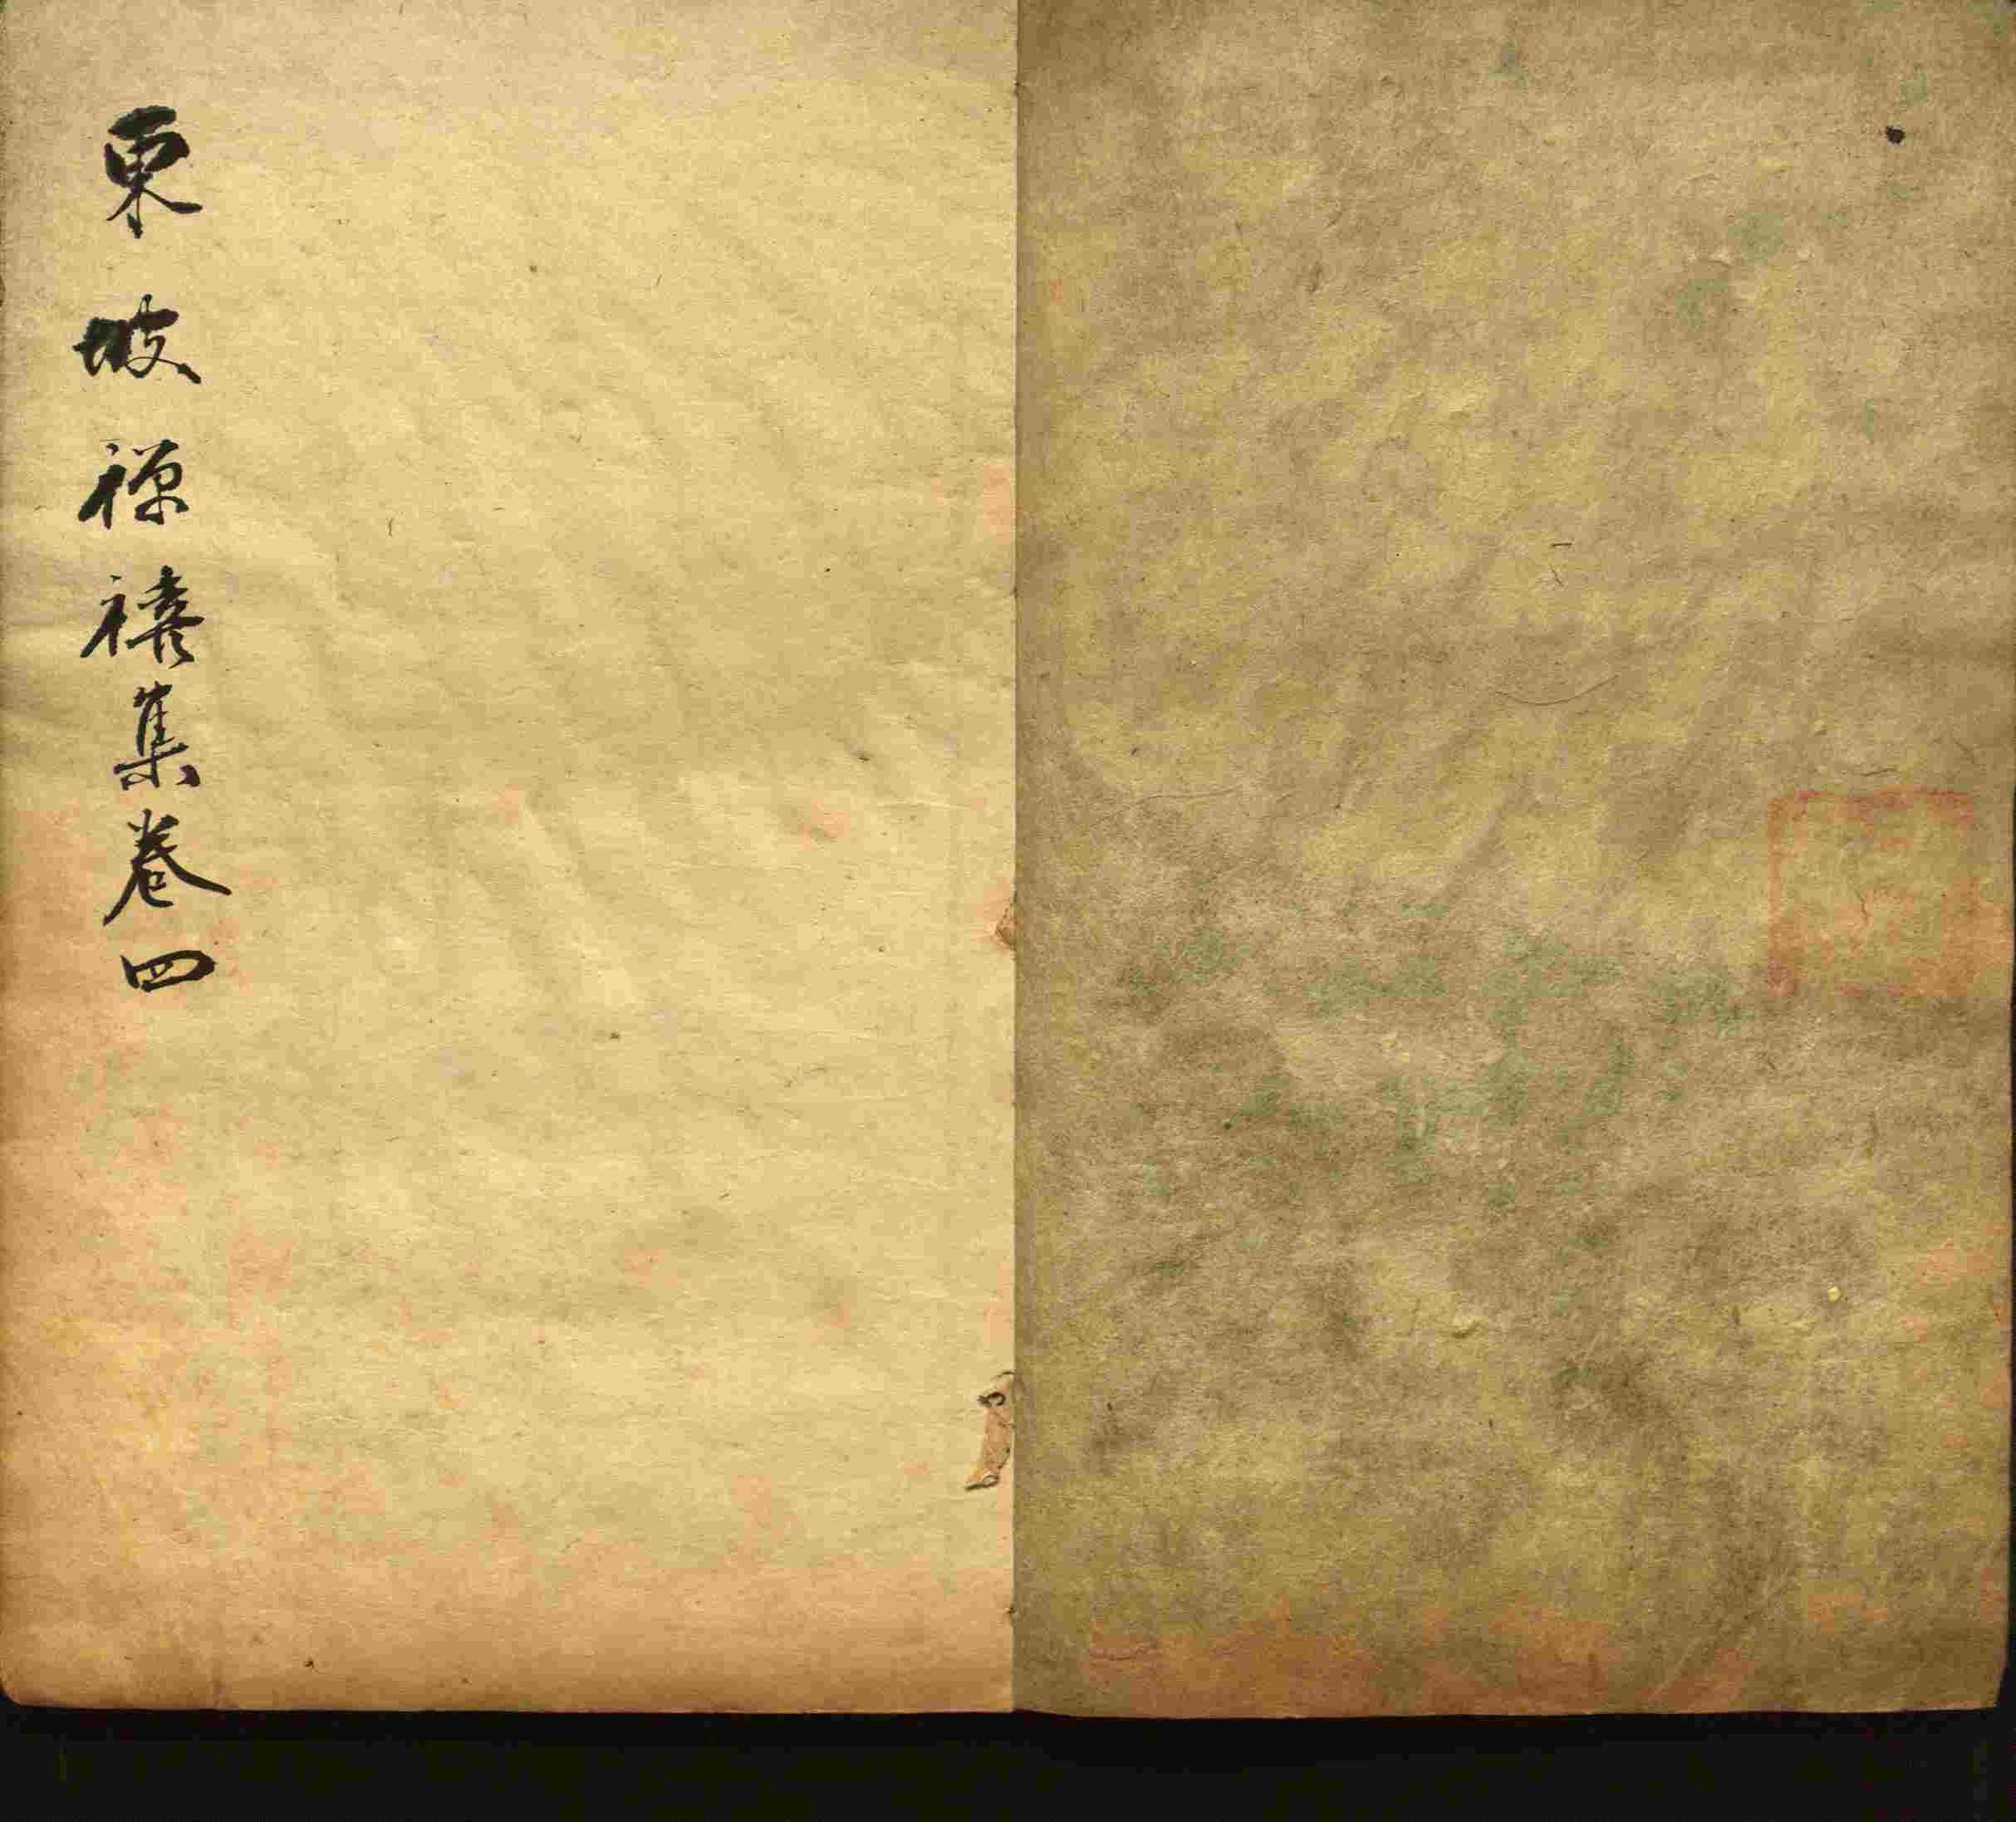 東坡禪禧集卷四